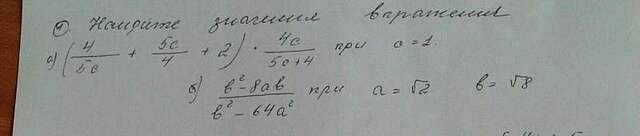 ① Найдите значения выражения
а) (4/5c + 5c/4 + 2) · 4c/5c+4 при c = 1.
б) b² - 8ab / b² - 64a² при a = √2 b = √8